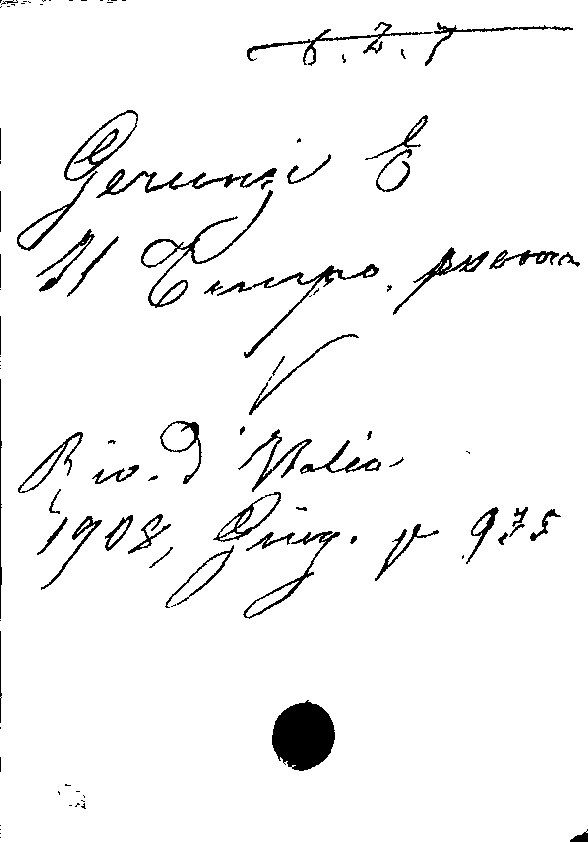 6.2.7
Gerunzi E
Il Tempo. poema
V
Riv. d'Italia
1908, Giug. p 975